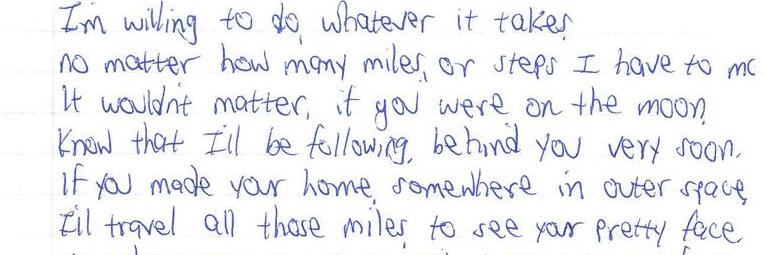 I'm willing to do, whatever it takes,
no matter how many miles, or steps I have to
It wouldn't matter, if you were on the moon,
Know that I'll be following, behind you very soon.
If you made your home, somewhere in outer space,
I'll travel all those miles, to see your pretty face.